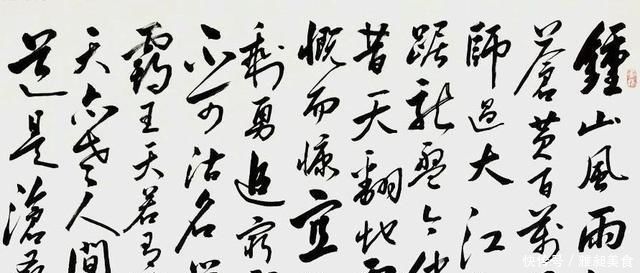 鍾山風雨
蒼黃百萬
師過大江
踞龍盤今
昔天翻地
慨而慷宜
剩勇追窮
不可沽名學
霸王天若有
天亦老人間
道是滄桑
快传号 / 雅昶美食